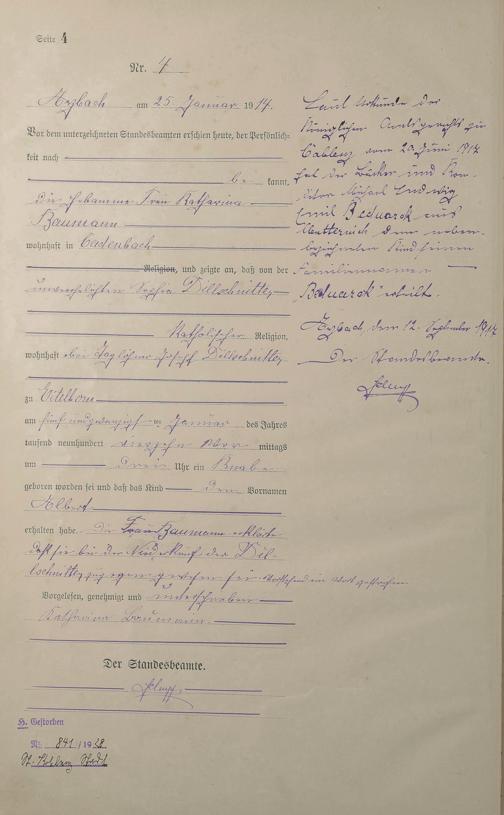 Seite 4
Nr. 4
Arzbach am 25 Januar 1914.
Vor dem unterzeichneten Standesbeamten erschien heute, der Persönlich-
keit nach
be kannt,
die Hebamme Frau Katharina
Baumann
wohnhaft in Cadenbach
Religion, und zeigte an, daß von der
unverehelichten Sophia Dillschnitter
Katholischer Religion,
wohnhaft bei Taglöhner Joseph Dillschnitter
zu Eitelborn
am fünf und zwanzigsten Januar des Jahres
tausend neunhundert vierzehn Vor mittags
um drei Uhr ein Knabe
geboren worden sei und daß das Kind den Vornamen
Albert
erhalten habe. Die Frau Baumann erklärte
daß sie bei der Niederkunft der Dil-
lschnitter zugegen gewesen sei. Vorstehend ein Wort gestrichen
Vorgelesen, genehmigt und unterschrieben
Katharina Baumann.
Der Standesbeamte.
H. Gestorben
Nr. 841/1928
St. Koblenz Stadt
Laut Urkunde der
Königlichen Amtsgerichts zu
Coblenz vom 20 Juni 1917
hat der Bäcker und Kon-
ditor Michael Ludwig
Emil Beduarck aus
dem neben-
bezeichneten Kind seinen
Familiennamen
"Beduarck" erteilt.
Arzbach, den 12. September 1917
Der Standesbeamte.